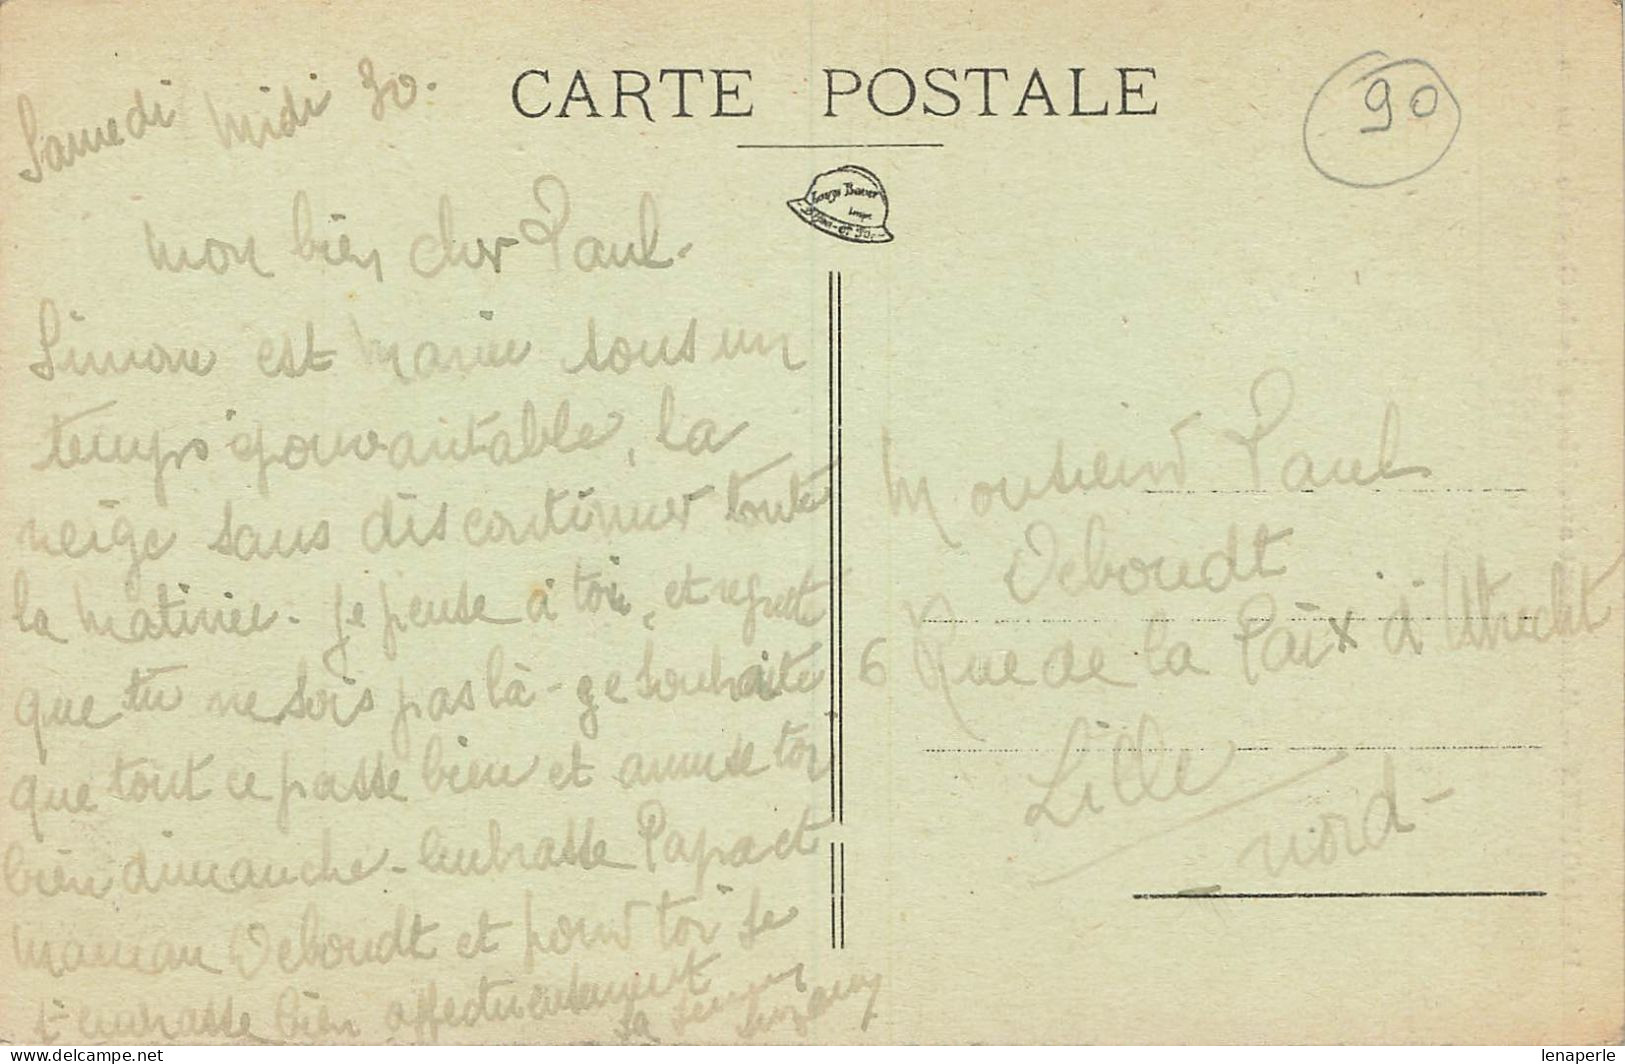 CARTE POSTALE
90
Samedi midi 30.
Mon bien cher Paul.
Simone est mariée sous un
temps épouvantable, la
neige sans discontinuer toute
la matinée. Je pense à toi, et regrette
que tu ne sois pas là - je souhaite
que tout ce passe bien et amuse toi
bien dimanche - Embrasse Papa et
maman Deboudt et pour toi je
t'embrasse bien affectueusement
ta
Suzanny
Monsieur Paul
Deboudt
6 Rue de la Paix d'Utrecht
Lille
Nord -
lenaperle